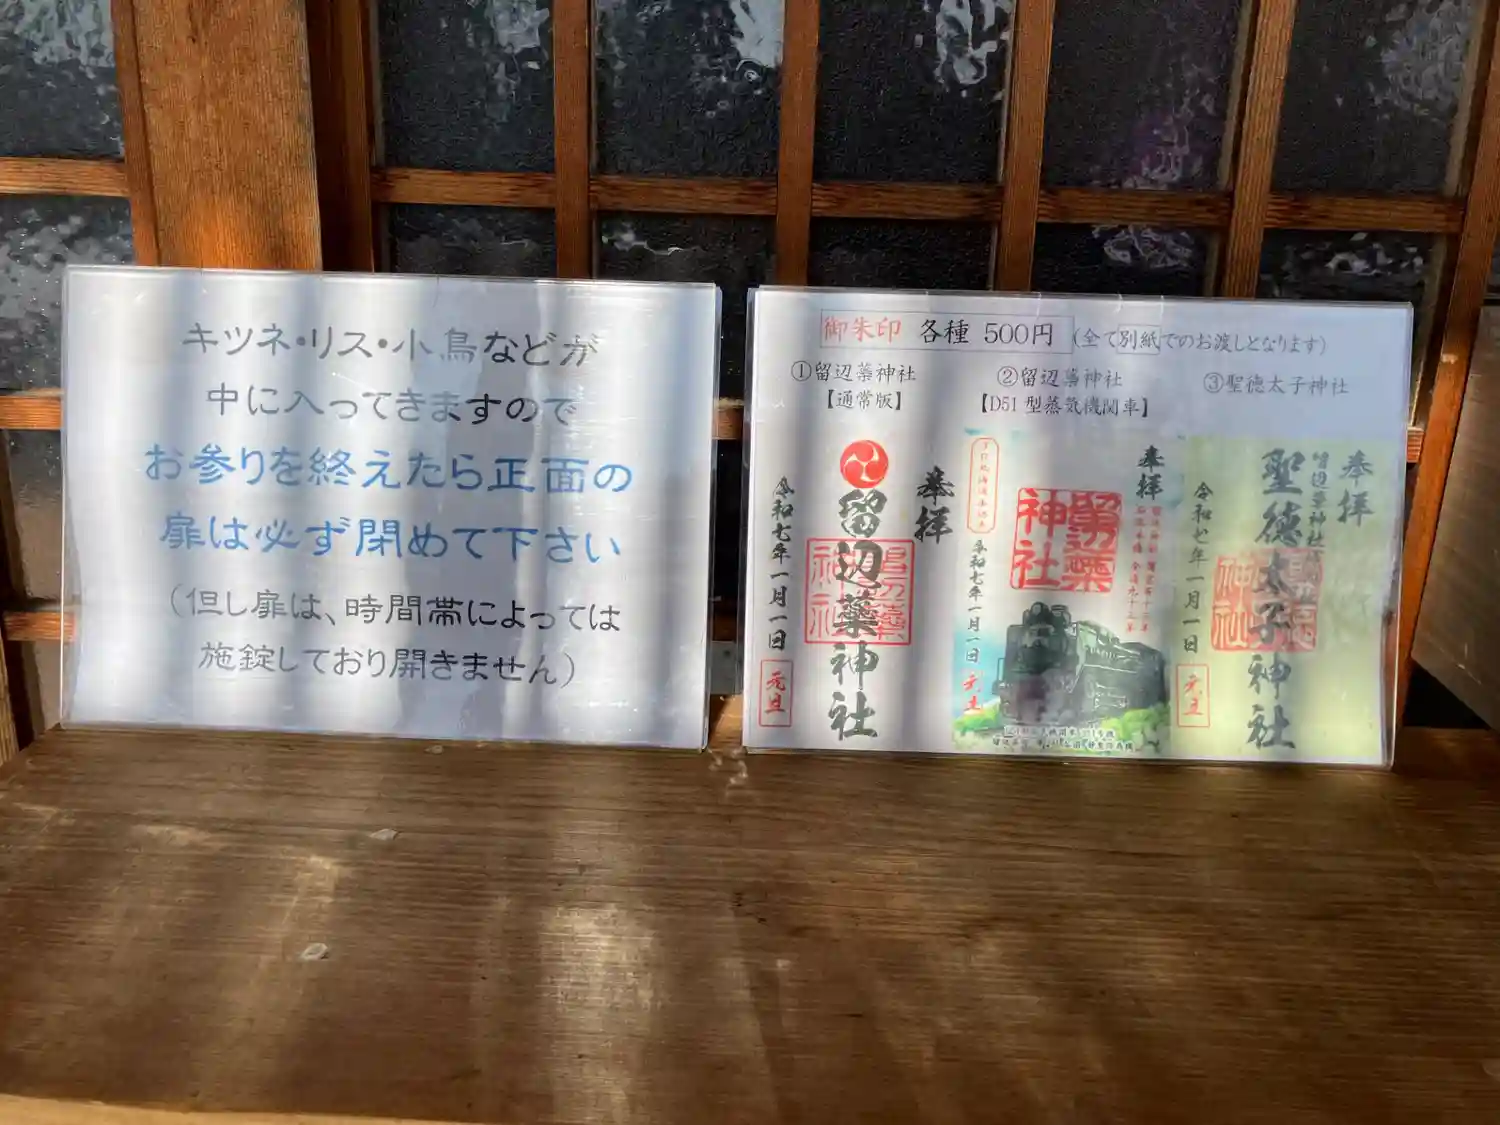 キツネ・リス・小鳥などが
中に入ってきますので
お参りを終えたら正面の
扉は必ず閉めて下さい
（但し扉は、時間帯によっては
施錠しており開きません）
御朱印 各種 500円 (全て別紙でのお渡しとなります)
①留辺蘂神社
【通常版】
②留辺蘂神社
【D51型蒸気機関車】
③聖徳太子神社
奉拝
留辺蘂神社
令和七年一月一日
元旦
奉拝
留辺蘂神社
令和七年一月一日
元旦
奉拝
留辺蘂神社
聖徳太子神社
令和七年一月一日
元旦